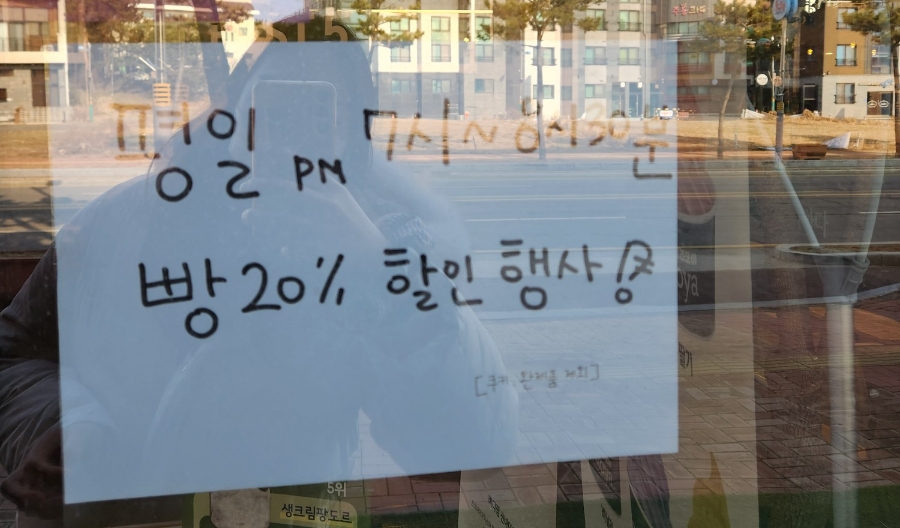 평일 PM 7시~8시30분
빵 20% 할인 행사!
[쿠키, 완제품 제외]
5위
생크림팡도르